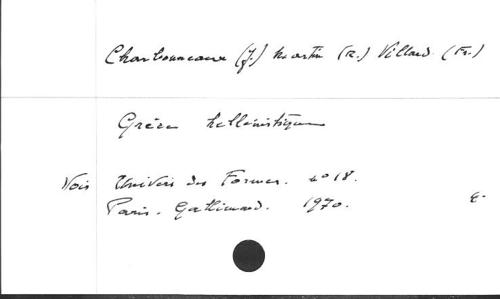 Charbonneaux (J.) Martin (R.) Villard (Fr.)
Grèce hellénistique
Voir Univers des Formes. n° 18.
Paris. Gallimard. 1970. E.